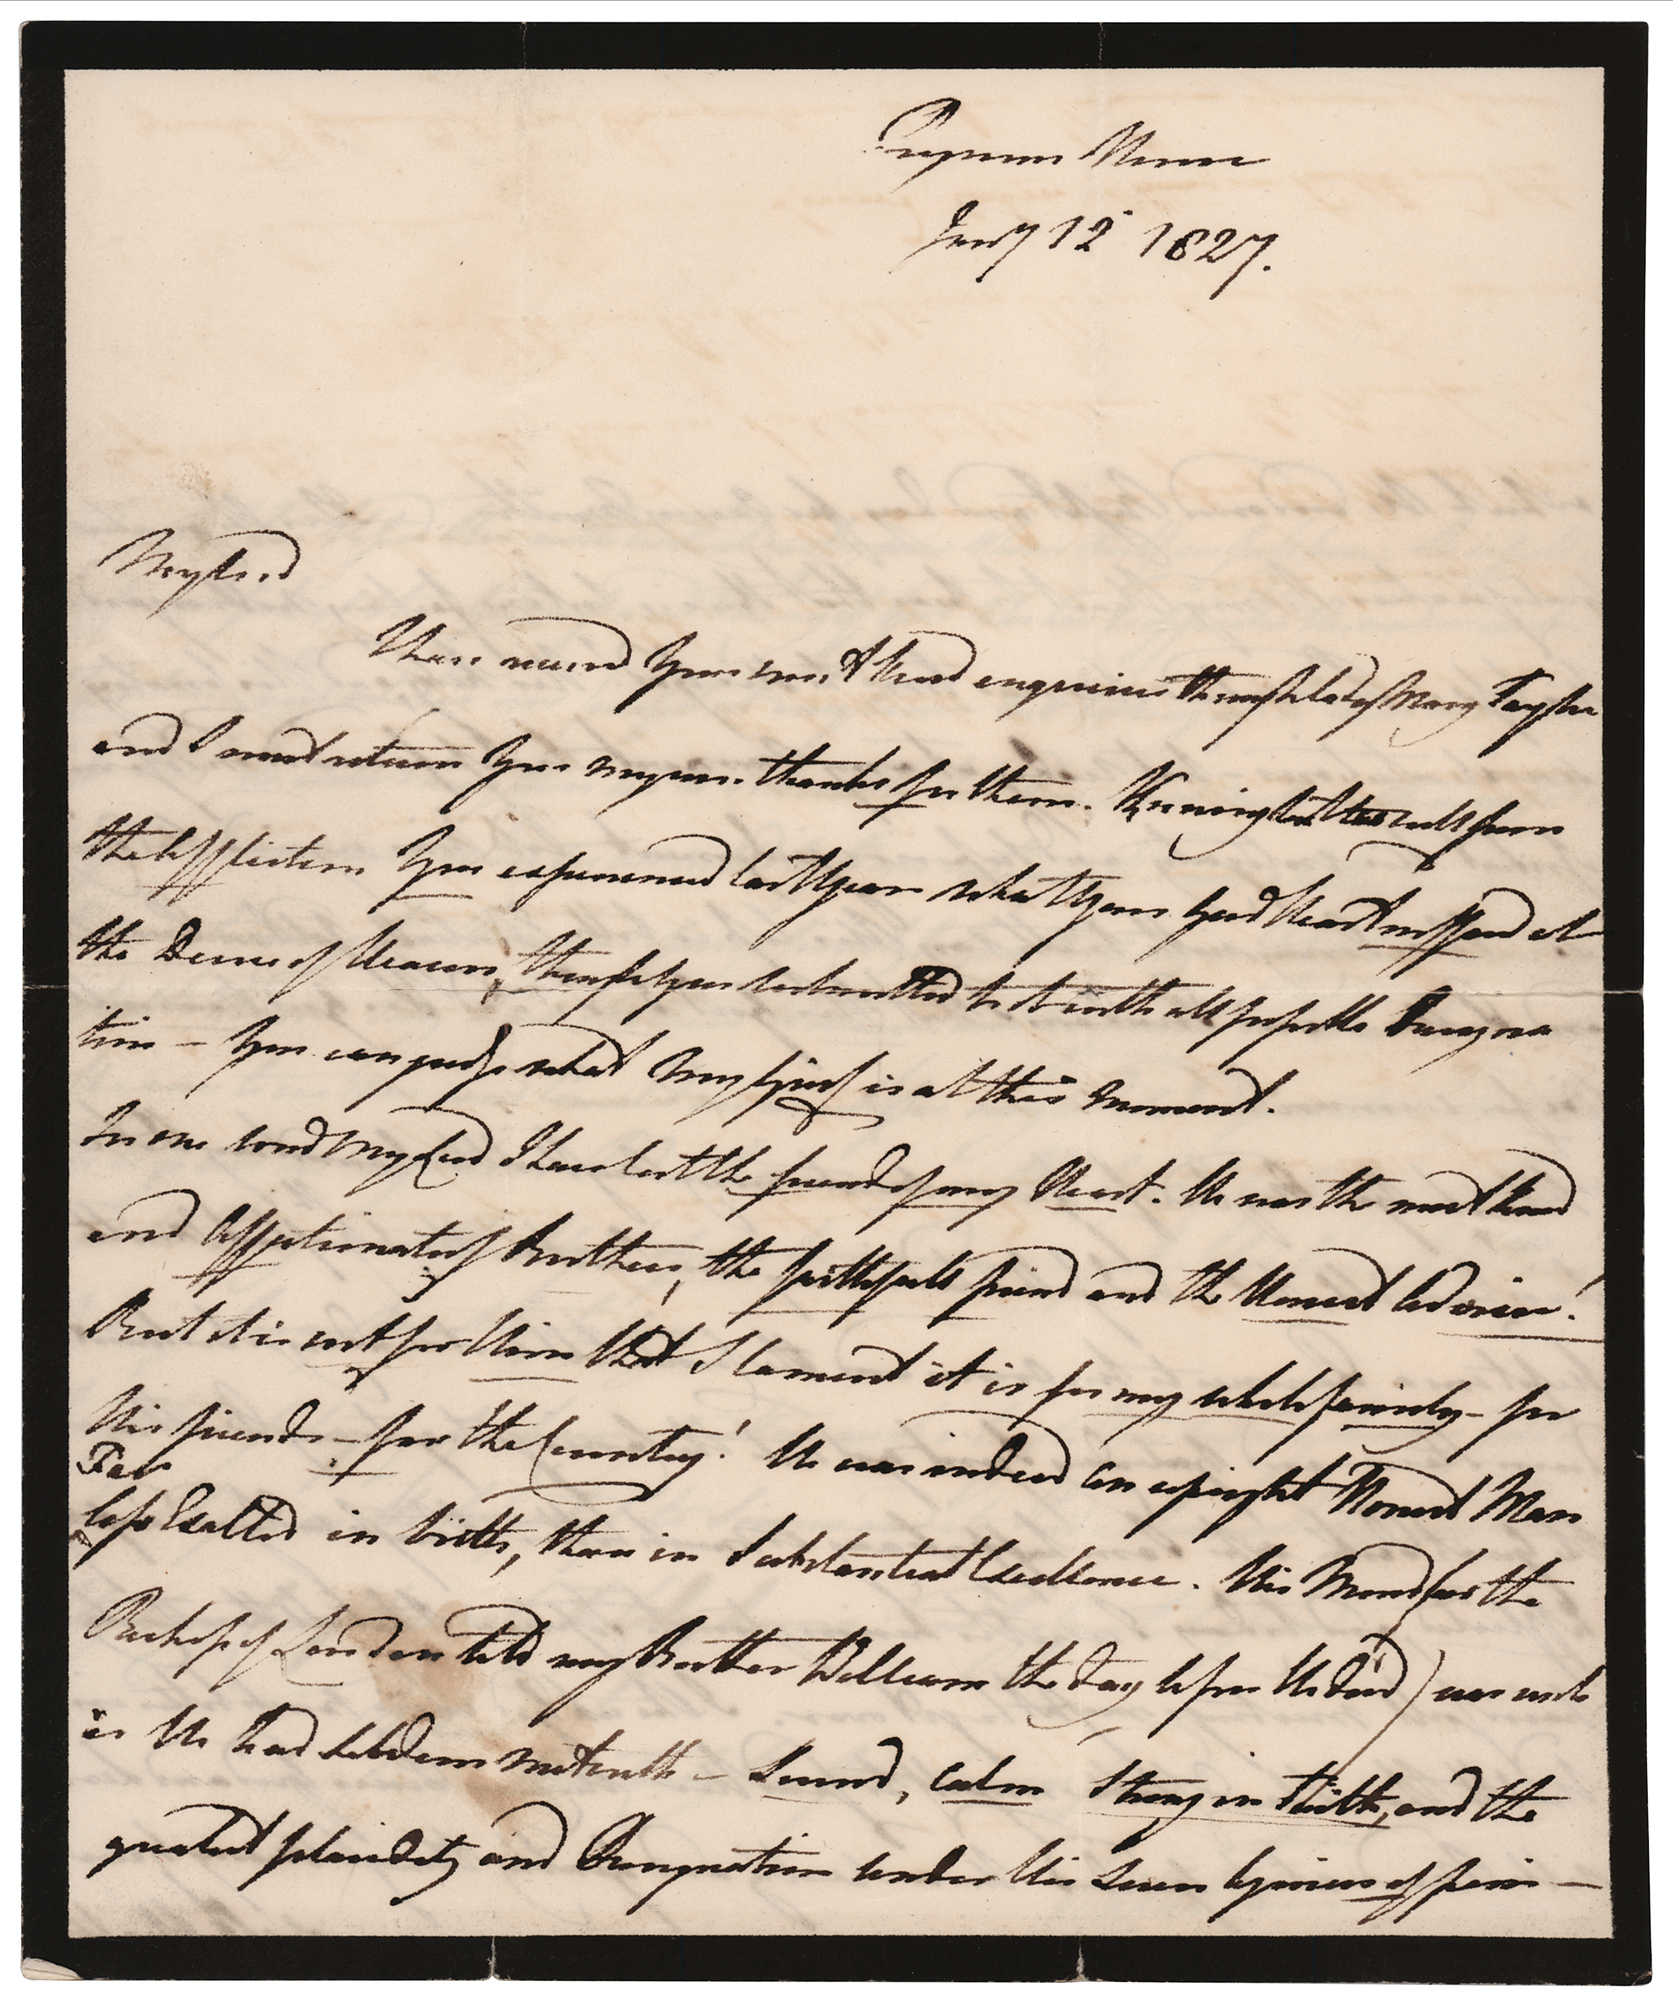 Jany 12 1827.
My Lord
I have received Your most kind enquiries through Lady Mary Taylor
and I must return You my own thanks for them. Knowing but too well from
the Affliction You experienced last Year what Your good Heart suffered at
the Decree of Heaven, though You submitted to it with all possible Resigna
tion – You can judge what My Grief is at this Moment.
In one word My Lord I have lost the friend of my Heart. He was the most kind
and Affectionate of Brothers, the faithfull friend and the Honest Adviser!
But it is not for Him that I lament it is for my whole family – for
His friends – for the Country! He was indeed an upright Honest Man
Far
less Exalted in birth, than in Substantial Excellence. His Mind (as the
Bishop of London told my Brother William the day before He died) was such
as He had seldom met with – Sound, Calm Strong in Faith, and the
greatest placidity and Resignation under His Severe Agonies of pain –